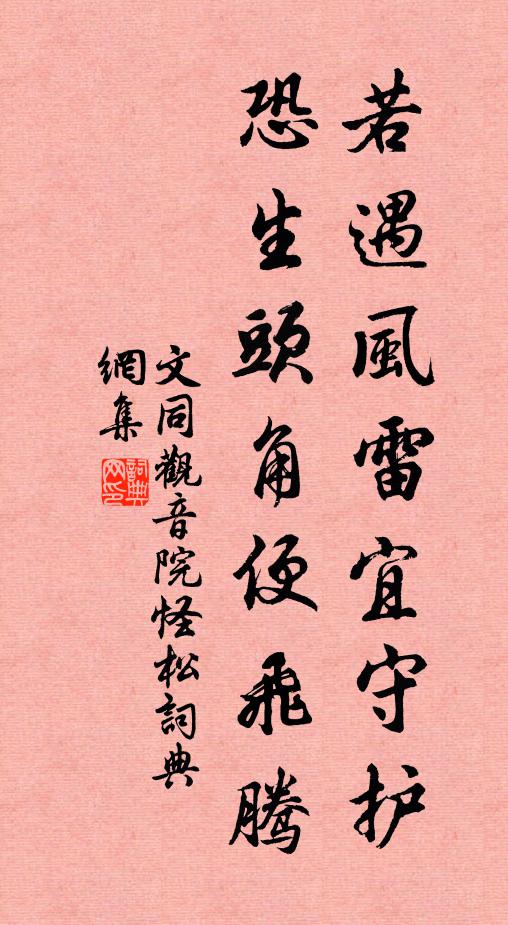 若遇風雷宜守护
恐生頭角便飛騰
文同觀音院怪松詞典
網集
詞典
网印